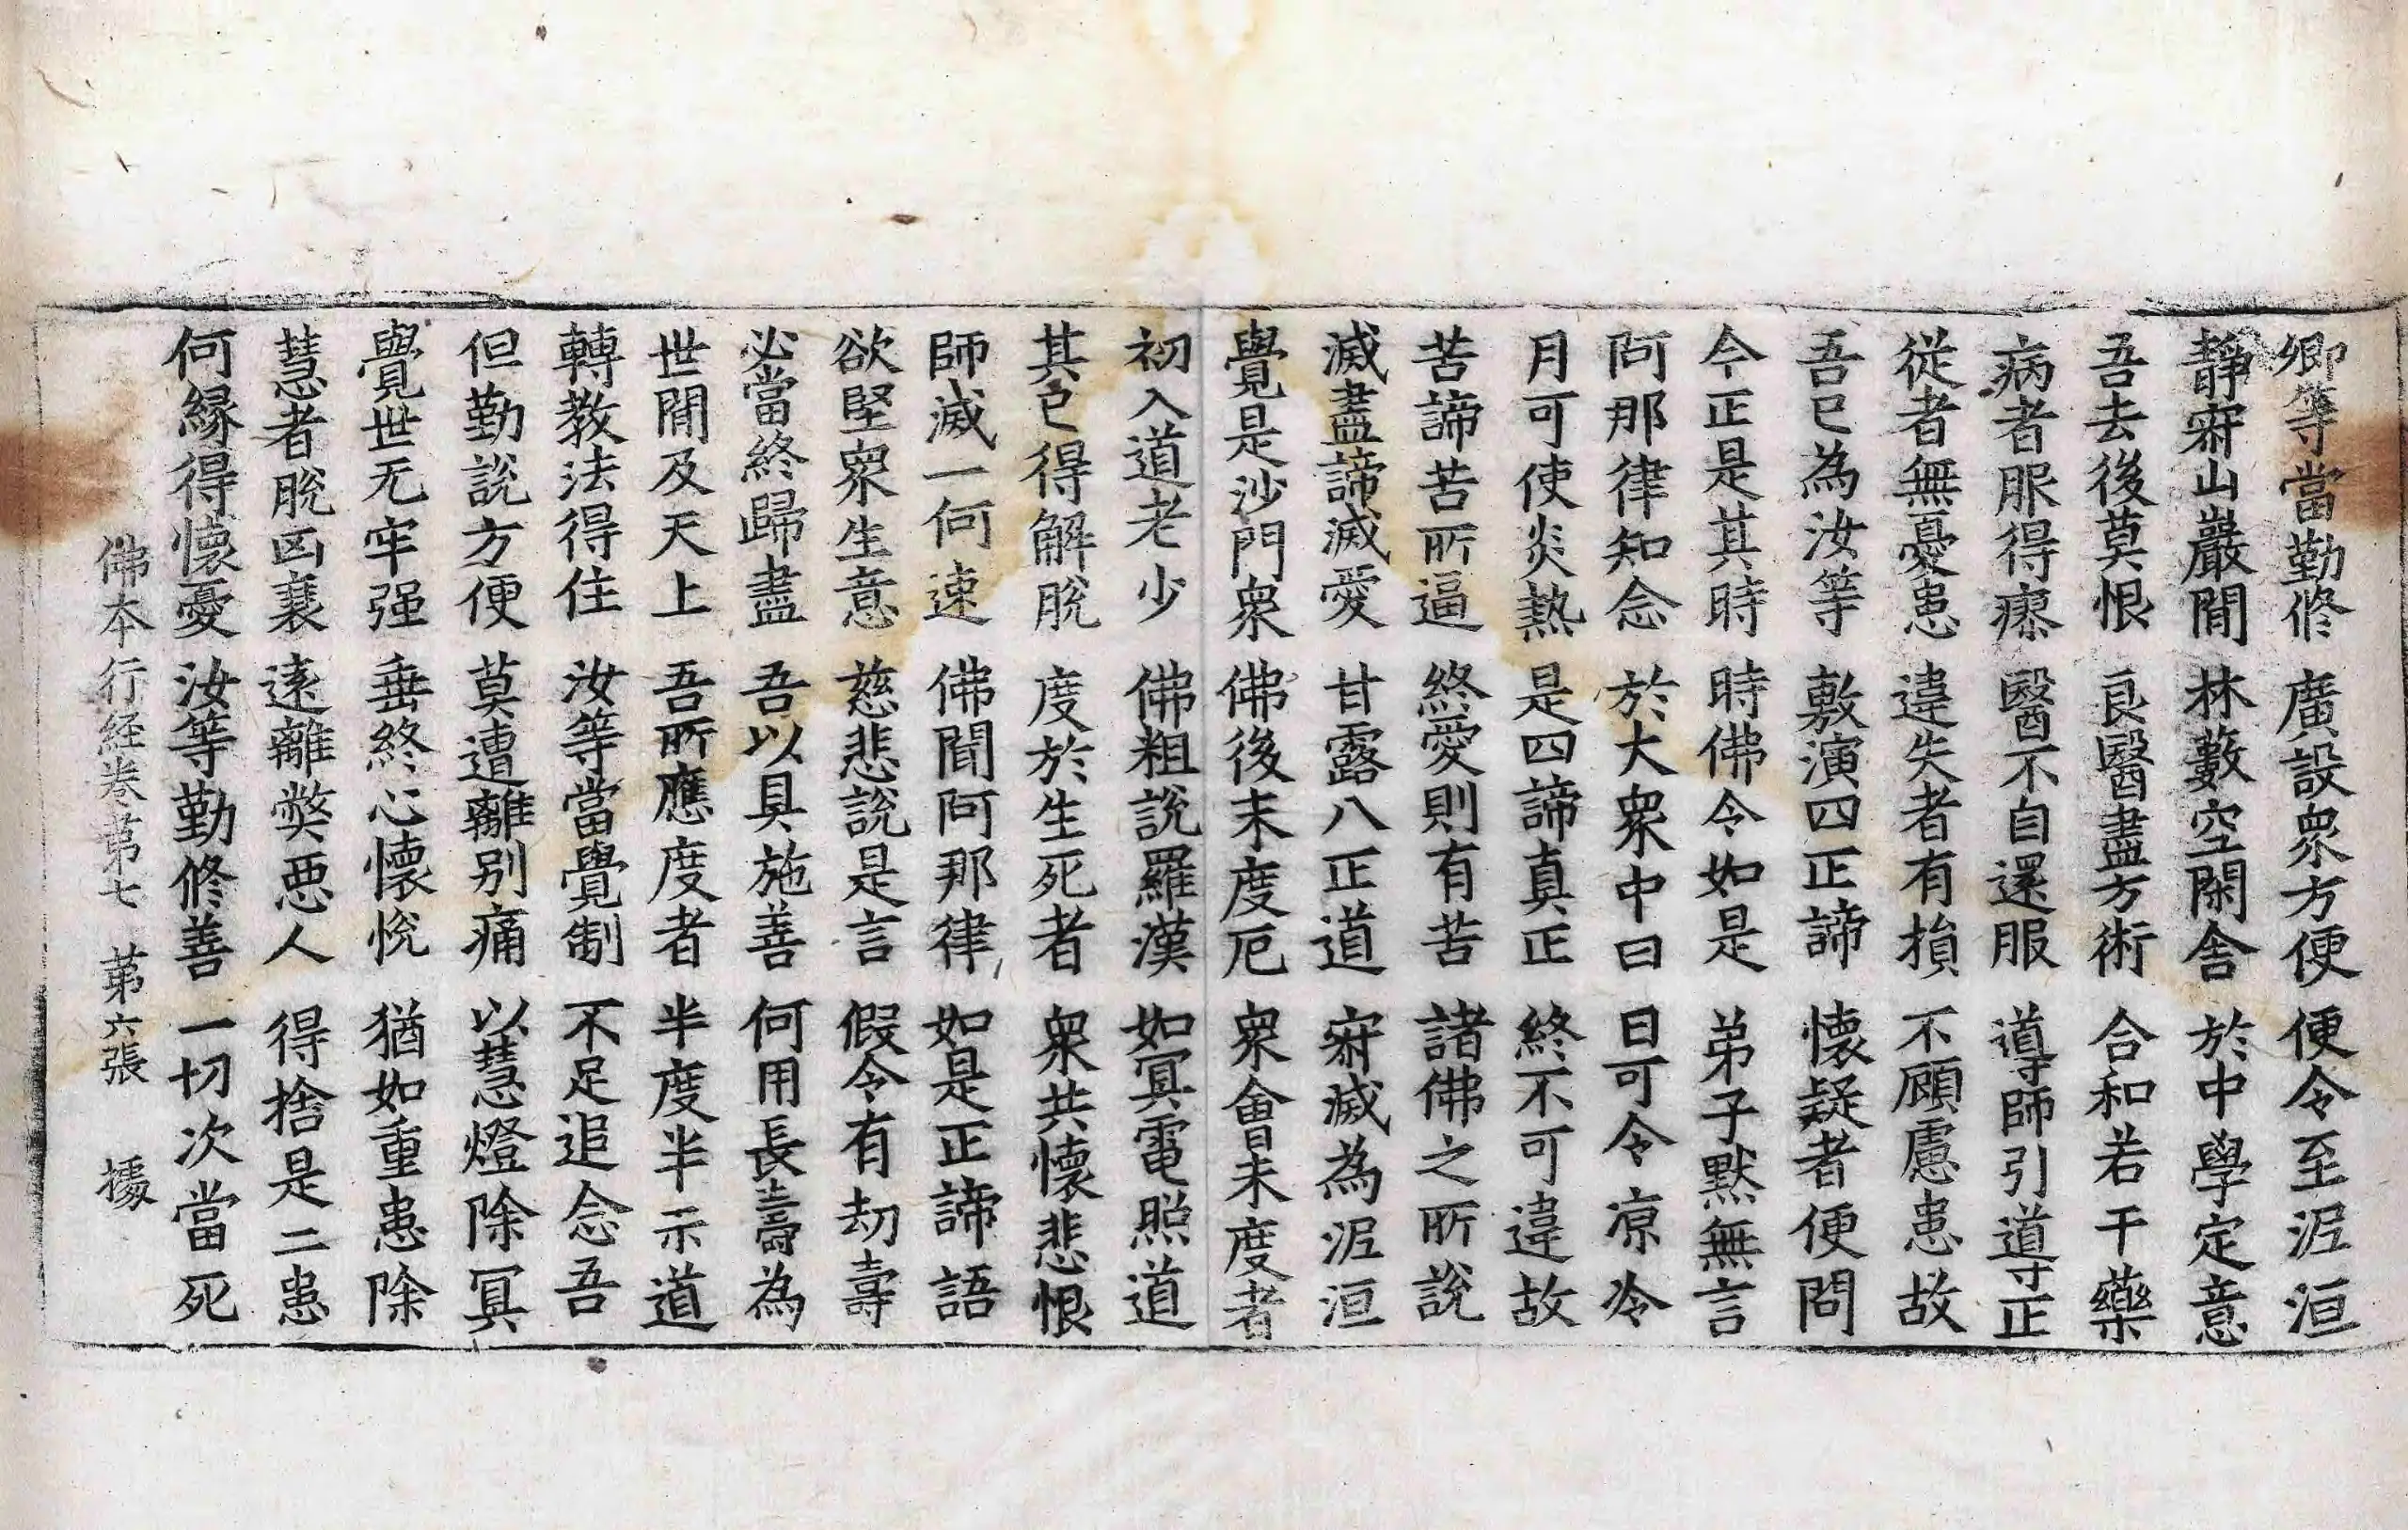 卿等當勤修 廣設衆方便 便令至泥洹
靜㝛山巖間 林藪空閑舍 於中學定意
吾去後莫恨 良醫盡方術 合和若干藥
病者服得瘳 醫不自還服 導師引導正
從者無憂患 違失者有損 不顧慮患故
吾已為汝等 敷演四正諦 懷疑者便問
今正是其時 時佛令如是 弟子默無言
阿那律知念 於大衆中曰 日可令凉冷
月可使炎熱 是四諦真正 終不可違故
苦諦苦所逼 終愛則有苦 諸佛之所說
滅盡諦滅愛 甘露八正道 㝛滅為泥洹
覺是沙門衆 佛後末度厄 衆會未度者
初入道老少 佛粗說羅漢 如冥電照道
其已得解脫 度於生死者 衆共懷悲恨
師滅一何速 佛聞阿那律 如是正諦語
欲堅衆生意 慈悲說是言 假令有劫壽
必當終歸盡 吾以具施善 何用長壽為
世間及天上 吾所應度者 半度半示道
轉教法得住 汝等當覺制 不足追念吾
但勤說方便 莫遭離别痛 以慧燈除冥
覺世无牢强 垂終心懷悅 猶如重患除
慧者脫凶衰 遠離弊惡人 得捨是二患
何緣得懷憂 汝等勤修善 一切次當死
佛本行経卷第七 第六張 據